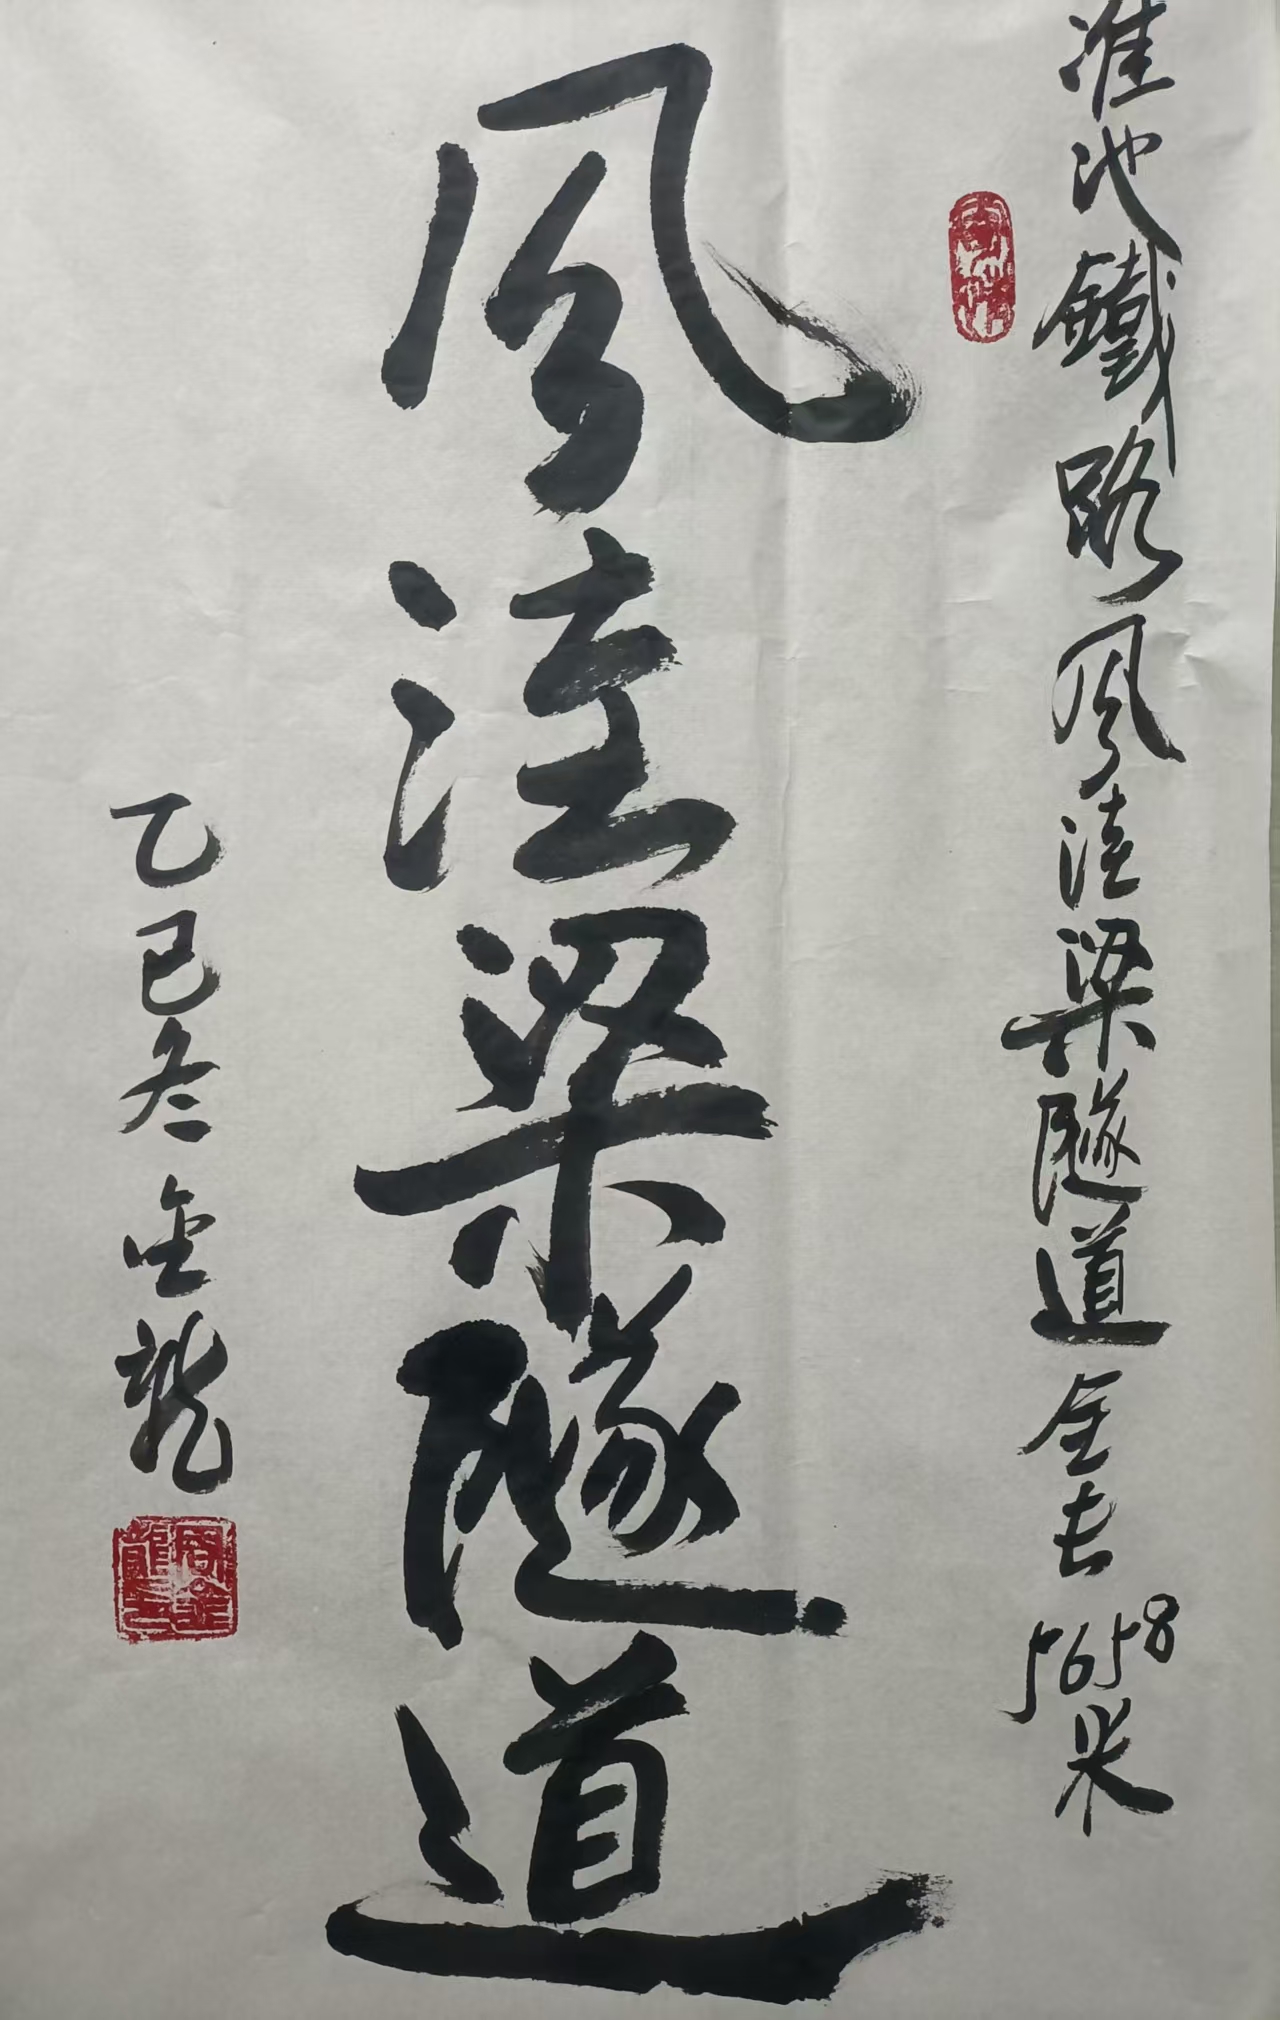 准池鐵路风洼梁隧道全长5658米
风洼梁隧道
乙巳冬金龍